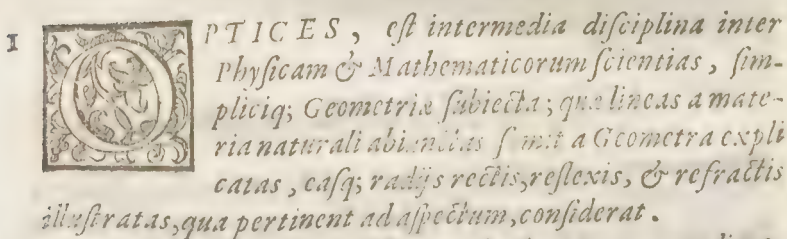 1 OPTICES, eſt intermedia diſciplina inter
Phyſicam & Mathematicorum ſcientias, ſim-
pliciq; Geometriæ ſubiecta; quæ lineas a mate-
ria naturali abiunctas ſumit a Geometra expli
catas, eaſq; radijs rectis, reflexis, & refractis
illuſtratas, qua pertinent ad aſpectum, conſiderat.